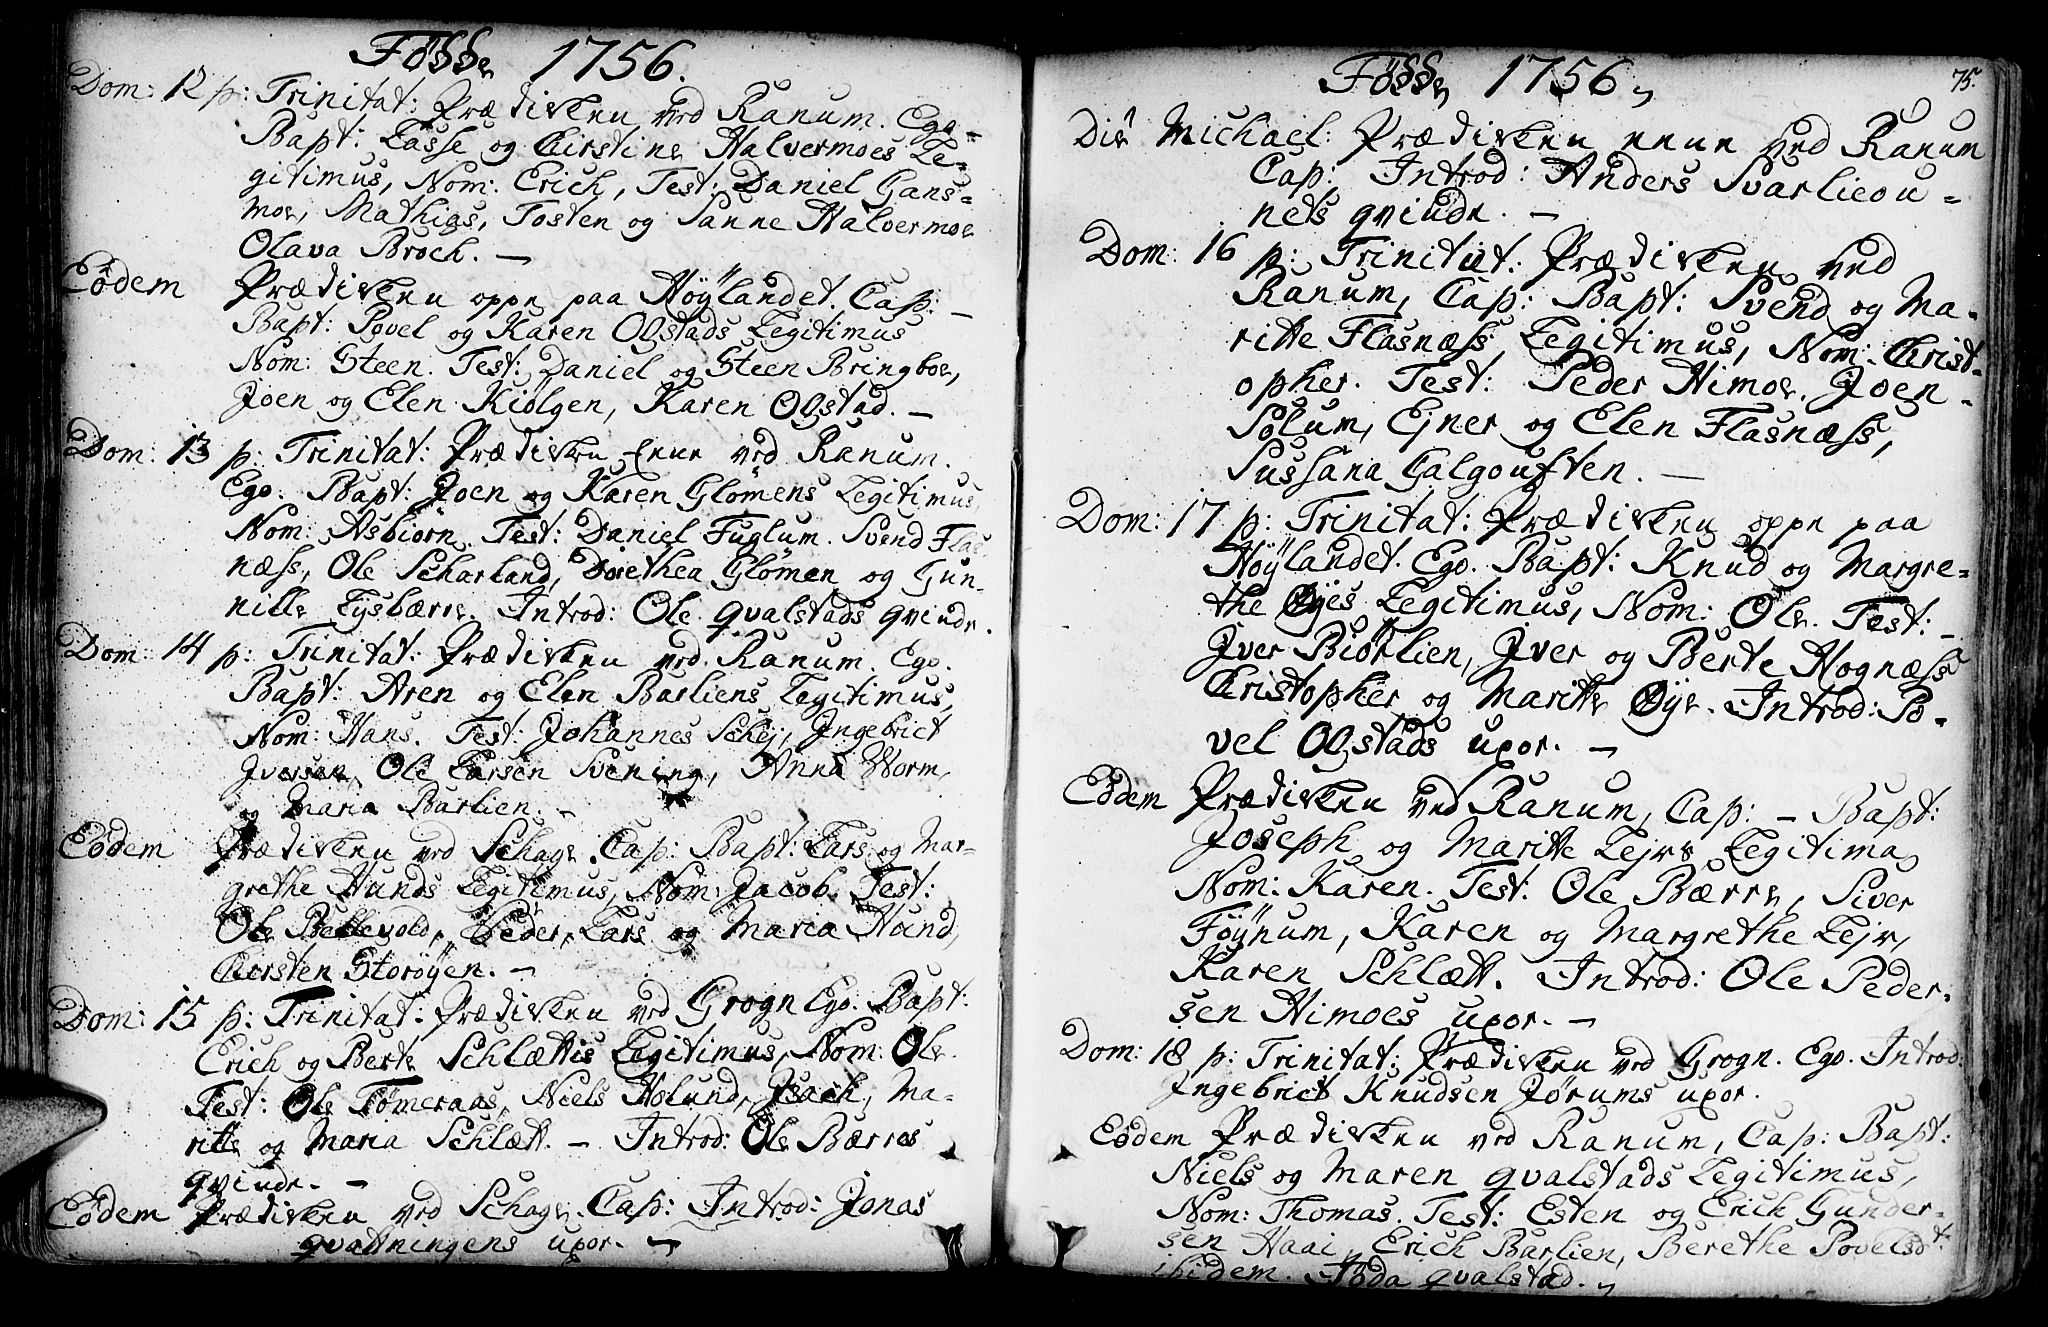 Föhse 1756.
Dom: 12 p: Trinitat: Prædicken ved Ranum. Ego
Bapt: Lasse og Chirstine Halvermoes Le-
gitimus, Nom: Erich, Test: Daniel Gans-
moe, Mathias, Tosten og Sanne Halvermoe
Olava Broch. —
Eodem Prædicken oppe paa Höÿlandet. Cap: —
Bapt: Povel og Karen Opstads Legitimus
Nom: Steen. Test: Daniel og Steen Bringboe,
Joen og Elen Kiölgen, Karen Opstad. —
Dom: 13 p: Trinitat: Prædicken Erne ved Ranum.
Ego. Bapt: Joen og Karen Glömens Legitimus
Nom: Asbiörn. Test: Daniel Fuglum. Svend Flas-
næss, Ole Scharland, Dorethea Glömen og Gun-
nille Lysbærre. Introd: Ole qvalstads qvinde.
Dom: 14 p: Trinitat: Prædicken ved Ranum. Ego.
Bapt: Aren og Elen Barliens Legitimus,
Nom: Hans. Test: Johannes Schej, Ingebrict
Iversen, Ole Larsen Svening, Anna Worm,
og Maria Barlien. —
Eodem Prædicken ved Schage. Cap: Bapt: Lars og Mar-
grethe Hunds Legitimus, Nom: Jacob. Test:
Ole Bellevold, Peder, Lars og Maria Hund,
Chirsten Storöÿen. —
Dom: 15 p: Trinitat: Prædicken ved Grogn Ego. Bapt:
Erich og Berte Schlættis Legitimus, Nom: Ole.
Test: Ole Tömeraas, Niels Holund, Isach, Ma-
ritte og Maria Schlætt. — Introd: Ole Bærres
qvinde. —
Eodem Prædicken ved Schage. Cap: Introd: Jonas
qvatningens uxor. —
Föhse 1756. 75.
Die Michael: Prædicken ved Ranum
Cap: Introd: Anders Svarlieou-
nets qvinde. —
Dom: 16 p: Trinitat: Prædicken ved
Ranum, Cap: Bapt: Svend og Ma-
ritte Flasnæss, Legitimus, Nom: Christ-
opher. Test: Peder Himoe, Joen-
Solum, Ejner og Elen Flasnæss,
Sussana Galgouften. —
Dom: 17 p: Trinitat: Prædicken oppe paa
Höÿlandet. Ego. Bapt: Knud og Margre-
the Öÿes Legitimus, Nom: Ole. Test: —
Iver Biörlien, Iver og Berte Hognæss
Christopher og Maritte Öÿe. Introd: Po-
vel Opstads uxor. —
Eodem Prædicken ved Ranum, Cap: — Bapt:
Joseph og Maritte Lejrs Legitima
Nom: Karen. Test: Ole Bærre, Siver
Föÿnum, Karen og Margrethe Lejr,
Karen Schlætt. Introd: Ole Peder-
sen Himoes uxor. —
Dom: 18 p: Trinitat: Prædicken ved Grogn. Ego. Introd:
Ingebrict Knudsen Jörums uxor.
Eodem Prædicken ved Ranum, Cap: Bapt:
Niels og Maren qvalstads Legitimus,
Nom: Thomas. Test: Esten og Erich Gunder-
sen Haai, Erich Barlien, Berethe Povelsdt:
ibidem. Aöda qvalstad. —